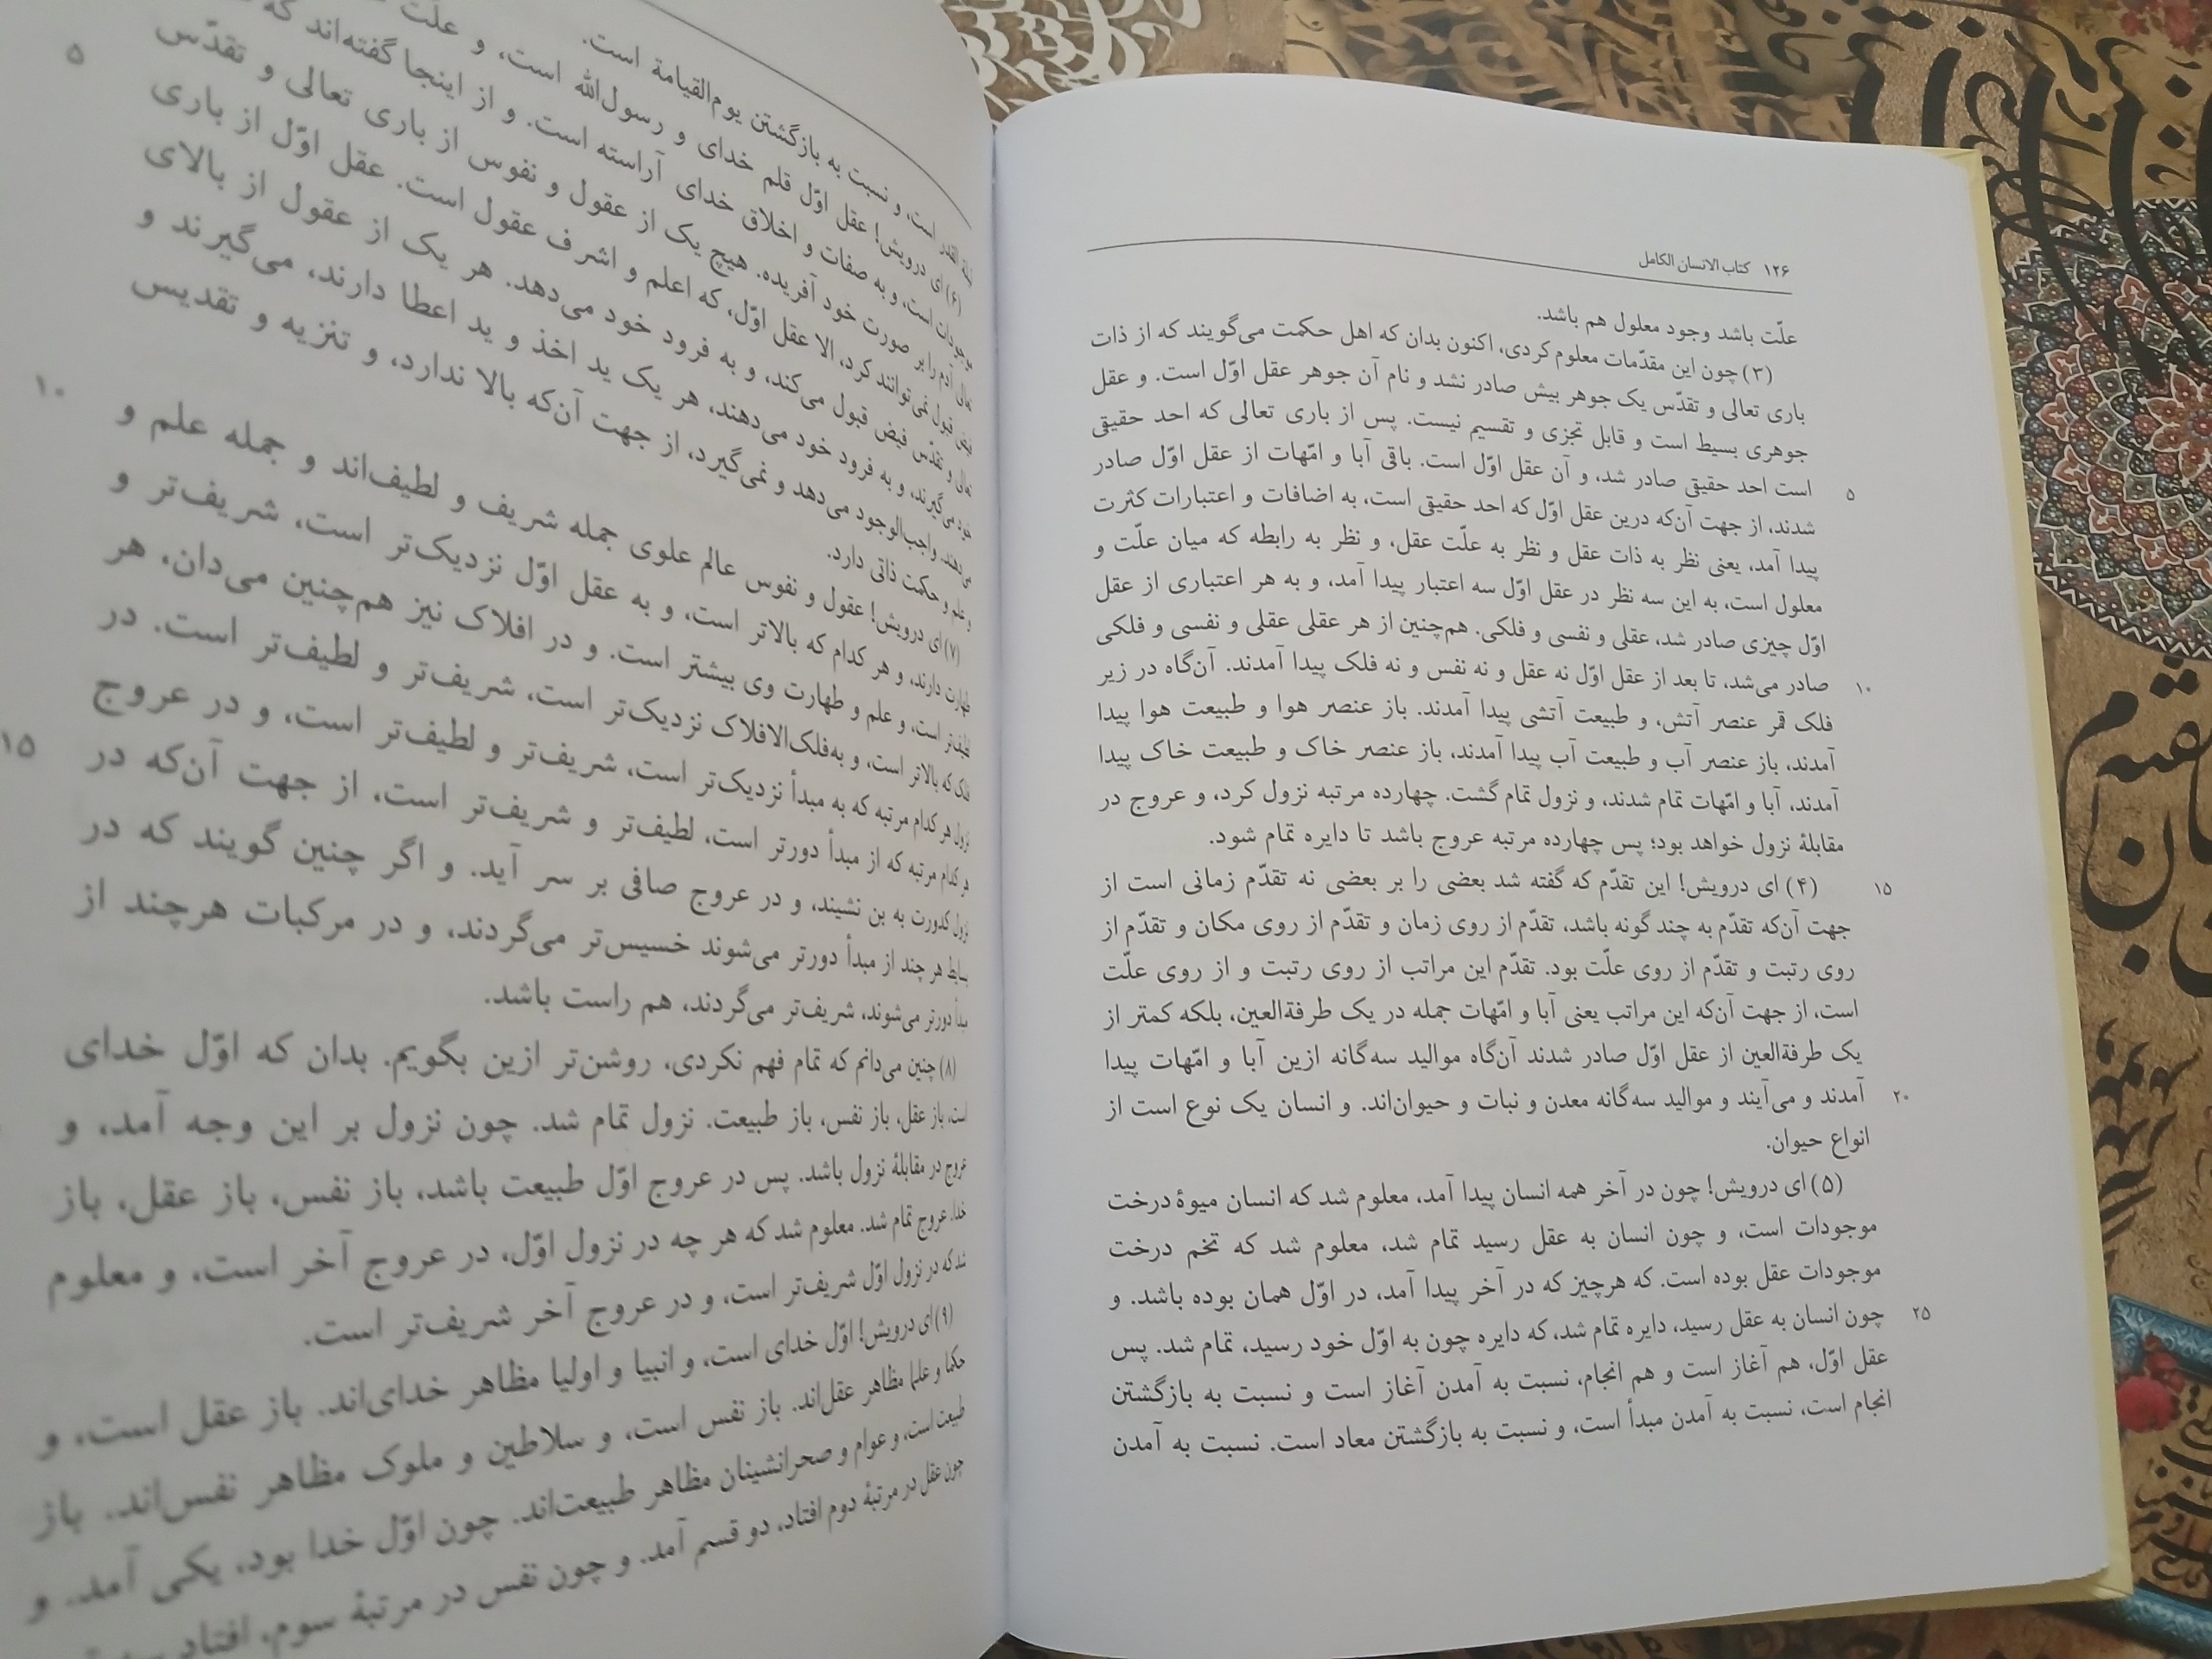 ۱۲۶ کتاب الانسان الکامل
علّت باشد وجود معلول هم باشد.
(۳) چون این مقدّمات معلوم کردی، اکنون بدان که اهل حکمت می‌گویند که از ذات
باری تعالی و تقدّس یک جوهر بیش صادر نشد و نام آن جوهر عقل اوّل است. و عقل
جوهری بسیط است و قابل تجزی و تقسیم نیست. پس از باری تعالی که احد حقیقی
۵ است احد حقیقی صادر شد، و آن عقل اوّل است. باقی آبا و امّهات از عقل اوّل صادر
شدند، از جهت آن‌که درین عقل اوّل که احد حقیقی است، به اضافات و اعتبارات کثرت
پیدا آمد، یعنی نظر به ذات عقل و نظر به علّت عقل، و نظر به رابطه که میان علّت و
معلول است، به این سه نظر در عقل اوّل سه اعتبار پیدا آمد، و به هر اعتباری از عقل
اوّل چیزی صادر شد، عقلی و نفسی و فلکی. هم‌چنین از هر عقلی عقلی و نفسی و فلکی
۱۰ صادر می‌شد، تا بعد از عقل اوّل نه عقل و نه نفس و نه فلک پیدا آمدند. آن‌گاه در زیر
فلک قمر عنصر آتش، و طبیعت آتشی پیدا آمدند. باز عنصر هوا و طبیعت هوا پیدا
آمدند، باز عنصر آب و طبیعت آب پیدا آمدند، باز عنصر خاک و طبیعت خاک پیدا
آمدند، آبا و امّهات تمام شدند، و نزول تمام گشت. چهارده مرتبه نزول کرد، و عروج در
مقابلهٔ نزول خواهد بود؛ پس چهارده مرتبه عروج باشد تا دایره تمام شود.
۱۵ (۴) ای درویش! این تقدّم که گفته شد بعضی را بر بعضی نه تقدّم زمانی است از
جهت آن‌که تقدّم به چند گونه باشد، تقدّم از روی زمان و تقدّم از روی مکان و تقدّم از
روی رتبت و تقدّم از روی علّت بود. تقدّم این مراتب از روی رتبت و از روی علّت
است، از جهت آن‌که این مراتب یعنی آبا و امّهات جمله در یک طرفةالعین، بلکه کمتر از
یک طرفةالعین از عقل اوّل صادر شدند آن‌گاه موالید سه‌گانه ازین آبا و امّهات پیدا
۲۰ آمدند و می‌آیند و موالید سه‌گانه معدن و نبات و حیوان‌اند. و انسان یک نوع است از
انواع حیوان.
(۵) ای درویش! چون در آخر همه انسان پیدا آمد، معلوم شد که انسان میوهٔ درخت
موجودات است، و چون انسان به عقل رسید تمام شد، معلوم شد که تخم درخت
موجودات عقل بوده است. که هرچیز که در آخر پیدا آمد، در اوّل همان بوده باشد. و
۲۵ چون انسان به عقل رسید، دایره تمام شد، که دایره چون به اوّل خود رسید، تمام شد. پس
عقل اوّل، هم آغاز است و هم انجام، نسبت به آمدن آغاز است و نسبت به بازگشتن
انجام است، نسبت به آمدن مبدأ است، و نسبت به بازگشتن معاد است. نسبت به آمدن
است، و نسبت به بازگشتن یوم‌القیامة است.
(۶) ای درویش! عقل اوّل قلم خدای و رسول‌الله است، و علّت
موجودات است، و به صفات و اخلاق خدای آراسته است. و از اینجا گفته‌اند که
تعالی آدم را بر صورت خود آفریده. هیچ یک از عقول و نفوس از باری تعالی و تقدّس
۵ فیض قبول نمی‌توانند کرد، الا عقل اوّل، که اعلم و اشرف عقول است. عقل اوّل از باری
تعالی و تقدّس فیض قبول می‌کند، و به فرود خود می‌دهد. هر یک از عقول از بالای
خود می‌گیرند، و به فرود خود می‌دهند، هر یک ید اخذ و ید اعطا دارند، می‌گیرند و
می‌دهند. واجب‌الوجود می‌دهد و نمی‌گیرد، از جهت آن‌که بالا ندارد، و تنزیه و تقدیس
و علم و حکمت ذاتی دارد.
۱۰ (۷) ای درویش! عقول و نفوس عالم علوی جمله شریف و لطیف‌اند و جمله علم و
طهارت دارند، و هر کدام که بالاتر است، و به عقل اوّل نزدیک‌تر است، شریف‌تر و
لطیف‌تر است، و علم و طهارت وی بیشتر است. و در افلاک نیز هم‌چنین می‌دان، هر
فلک که بالاتر است، و به‌فلک‌الافلاک نزدیک‌تر است، شریف‌تر و لطیف‌تر است. در
نزول هر کدام مرتبه که به مبدأ نزدیک‌تر است، شریف‌تر و لطیف‌تر است، و در عروج
۱۵ هر کدام مرتبه که از مبدأ دورتر است، لطیف‌تر و شریف‌تر است، از جهت آن‌که در
نزول کدورت به بن نشیند، و در عروج صافی بر سر آید. و اگر چنین گویند که در
بسایط هر چند از مبدأ دورتر می‌شوند خسیس‌تر می‌گردند، و در مرکبات هرچند از
مبدأ دورتر می‌شوند، شریف‌تر می‌گردند، هم راست باشد.
(۸) چنین می‌دانم که تمام فهم نکردی، روشن‌تر ازین بگویم. بدان که اوّل خدای
است، باز عقل، باز نفس، باز طبیعت. نزول تمام شد. چون نزول بر این وجه آمد، و
عروج در مقابلهٔ نزول باشد. پس در عروج اوّل طبیعت باشد، باز نفس، باز عقل، باز
خدا، عروج تمام شد. معلوم شد که هر چه در نزول اوّل، در عروج آخر است، و معلوم
شد که در نزول اوّل شریف‌تر است، و در عروج آخر شریف‌تر است.
(۹) ای درویش! اوّل خدای است، و انبیا و اولیا مظاهر خدای‌اند. باز عقل است، و
حکما و علما مظاهر عقل‌اند. باز نفس است، و سلاطین و ملوک مظاهر نفس‌اند. باز
طبیعت است، و عوام و صحرانشینان مظاهر طبیعت‌اند. چون اوّل خدا بود، یکی آمد. و
چون عقل در مرتبهٔ دوم افتاد، دو قسم آمد. و چون نفس در مرتبهٔ سوم، افتاد